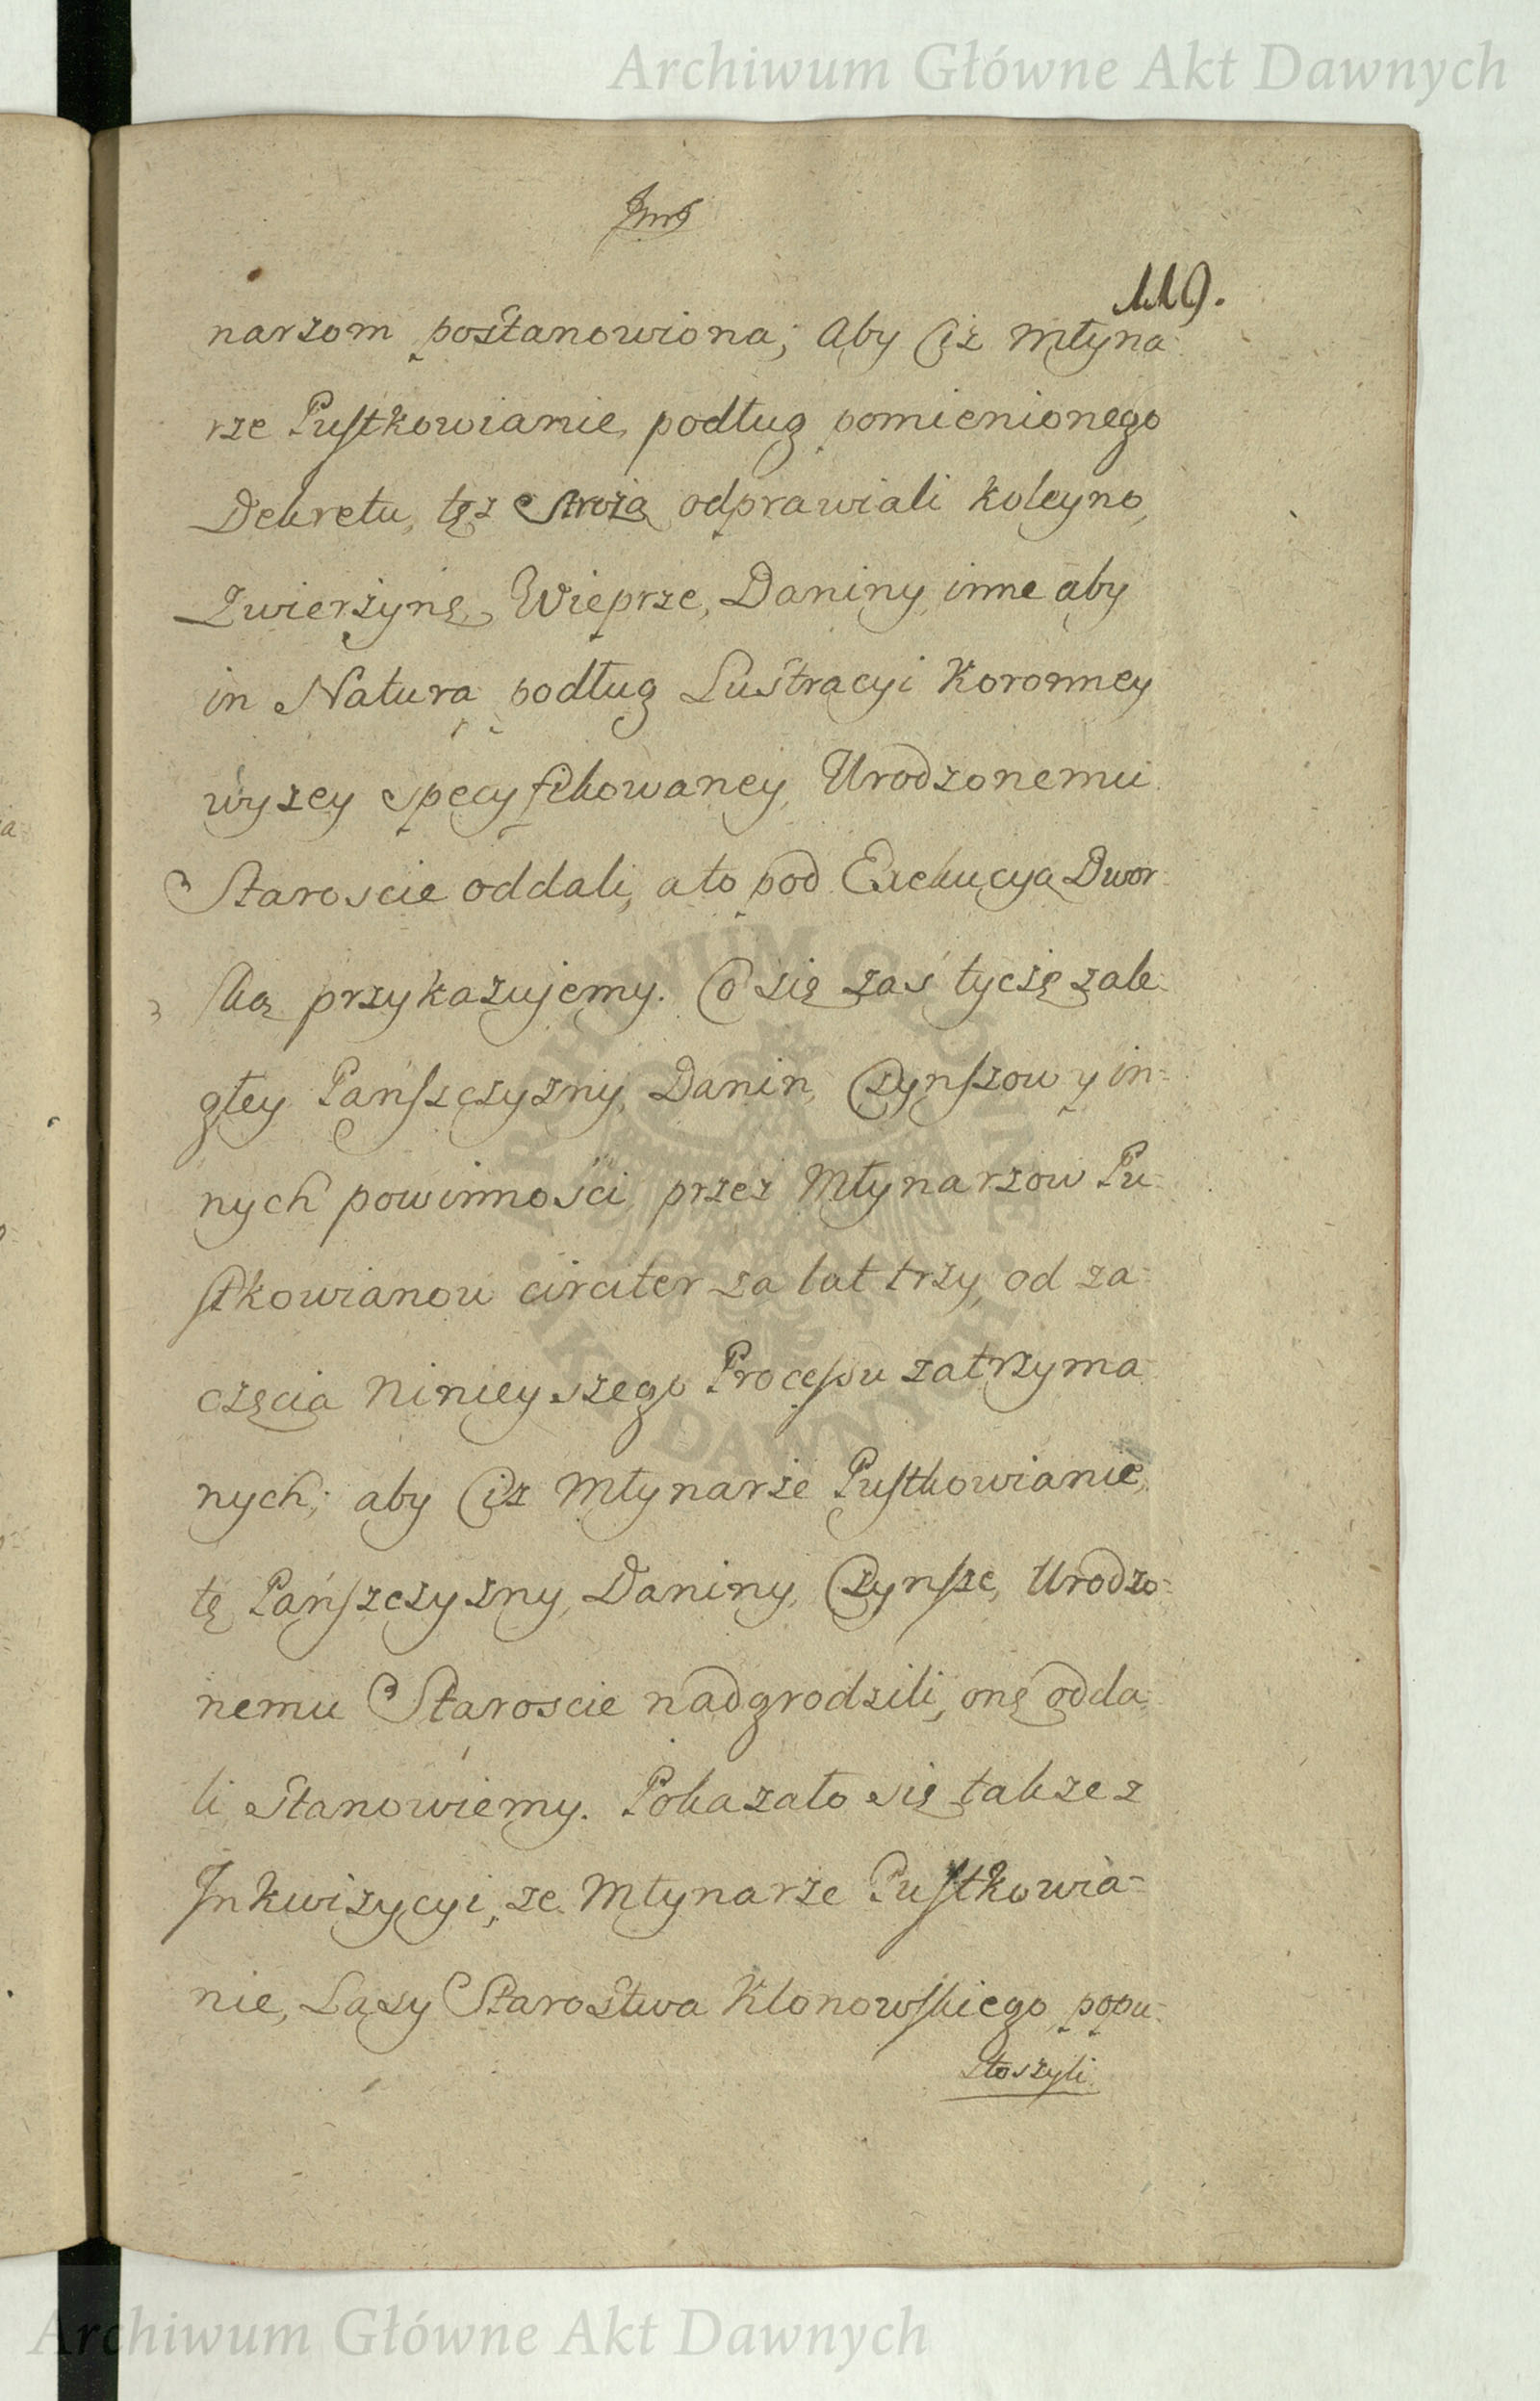 Archiwum Główne Akt Dawnych
119.
narzom postanowiona; aby Ciż Młyna-
rze Pustkowianie, podług pomienionego
Dekretu, tęż Strożą odprawiali koleyno,
Zwierzynę, Wieprze, Daniny inne aby
in Natura podług Lustracyi Koronney
wyzey specyfikowaney, Urodzonemu
Staroscie oddali, a to pod Exekucyą Dwor-
ską przykazujemy. Co się zaś tycze zale-
głey Pańszczyzny, Danin, Czynszow y in-
nych powinności przez Młynarzow Pu-
stkowianow circiter za lat trzy, od za-
częcia Ninieyszego Processu zatrzyma-
nych; aby Ciż Młynarze Pustkowianie,
tę Pańszczyzny, Daniny, Czynsze, Urodzo-
nemu Staroscie nadgrodzili, onę odda-
li Stanowiemy. Pokazało się także z
Inkwizycyi, ze Młynarze Pustkowia-
nie, Lasy Starostwa Klonowskiego popu-
stoszyli
ARCHIWUM GŁÓWNE • AKT DAWNYCH •
Archiwum Główne Akt Dawnych